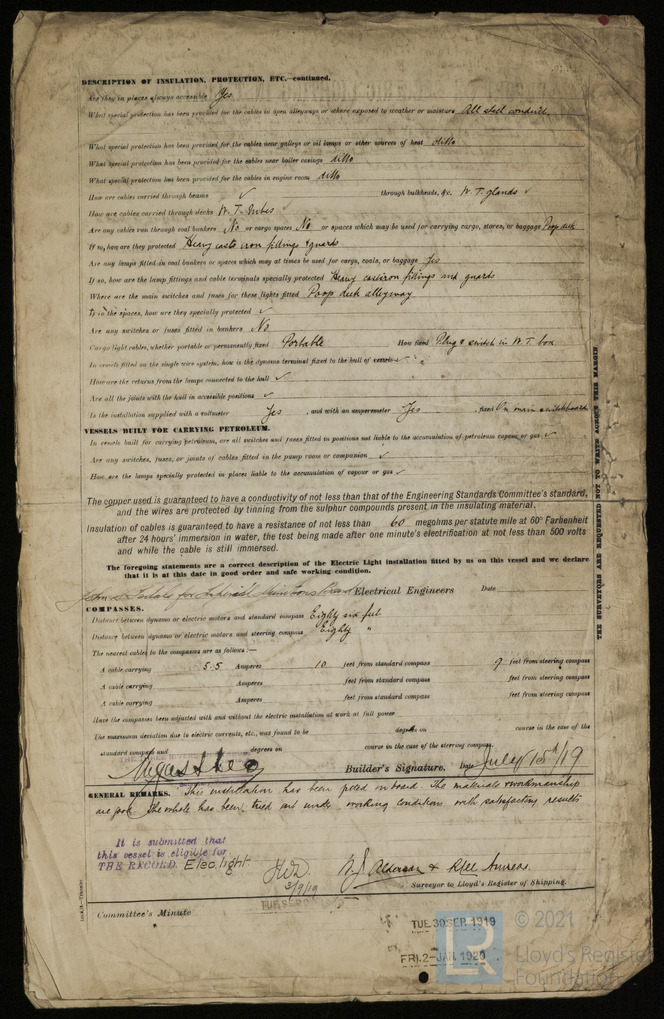 DESCRIPTION OF INSULATION, PROTECTION, ETC.—continued.
Are they in places always accessible Yes
What special protection has been provided for the cables in open alleyways or others exposed to weather or moisture All steel conduit.
What special protection has been provided for the cables near galleys or oil lamps or other sources of heat ditto
What special protection has been provided for the cables near boiler casings ditto
What special protection has been provided for the cables in engine room ditto
How are cables carried through beams ✓ through bulkheads, &c. W.T. glands ✓
How are cables carried through decks W.T. Tubes ✓
Are any cables run through coal bunkers No or cargo spaces No or spaces which may be used for carrying cargo, stores, or baggage Poop deck
If so, how are they protected Heavy caste iron fittings & guards
Are any lamps fitted in coal bunkers or spaces which may at times be used for cargo, coals, or baggage Yes
If so, how are the lamp fittings and cable terminals specially protected Heavy cast iron fittings and guards
Where are the main switches and fuses for these lights fitted Poop deck alleyway
If in the spaces, how are they specially protected ✓
Are any switches or fuses fitted in bunkers No
Cargo light cables, whether portable or permanently fixed Portable How fixed Plug & switch in W.T. box
In vessels fitted on the single wire system, how is the dynamo terminal fixed to the hull of vessel ✓
How are the returns from the lamps connected to the hull ✓
Are all the joints with the hull in accessible positions ✓
Is the installation supplied with a voltmeter Yes , and with an amperemeter Yes , fixed On main switchboard
VESSELS BUILT FOR CARRYING PETROLEUM.
In vessels built for carrying petroleum, are all switches and fuses fitted in positions not liable to the accumulation of petroleum vapour or gas ✓
Are any switches, fuses, or joints of cables fitted in the pump room or companion ✓
How are the lamps specially protected in places liable to the accumulation of vapour or gas ✓
The copper used is guaranteed to have a conductivity of not less than that of the Engineering Standards Committee's standard,
and the wires are protected by tinning from the sulphur compounds present in the insulating material.
Insulation of cables is guaranteed to have a resistance of not less than 60 megohms per statute mile at 60° Farhenheit
after 24 hours' immersion in water, the test being made after one minute's electrification at not less than 500 volts
and while the cable is still immersed.
The foregoing statements are a correct description of the Electric Light installation fitted by us on this vessel and we declare
that it is at this date in good order and safe working condition.
for Imperial Munitions Board Electrical Engineers Date
COMPASSES.
Distance between dynamo or electric motors and standard compass Eighty six feet
Distance between dynamo or electric motors and steering compass Eighty "
The nearest cables to the compasses are as follows:—
A cable carrying 5.5 Amperes 10 feet from standard compass 9 feet from steering compass
A cable carrying Amperes feet from standard compass feet from steering compass
A cable carrying Amperes feet from standard compass feet from steering compass
Have the compasses been adjusted with and without the electric installation at work at full power
The maximum deviation due to electric currents, etc., was found to be degrees on course in the case of the
standard compass and degrees on course in the case of the steering compass.
Builder's Signature. Date July 15th/19
GENERAL REMARKS. This installation has been fitted on board. The materials & workmanship
are good. The whole has been tried out under working condition with satisfactory results
It is submitted that
this vessel is eligible for
THE RECORD. Elec. light
3/9/19
Surveyor to Lloyd's Register of Shipping.
Committee's Minute
TUE. 30 SEP. 1919
FRI. 2-JAN. 1920
THE SURVEYORS ARE REQUESTED NOT TO WRITE ACROSS THIS MARGIN
LR
© 2021
Lloyd's Register
Foundation